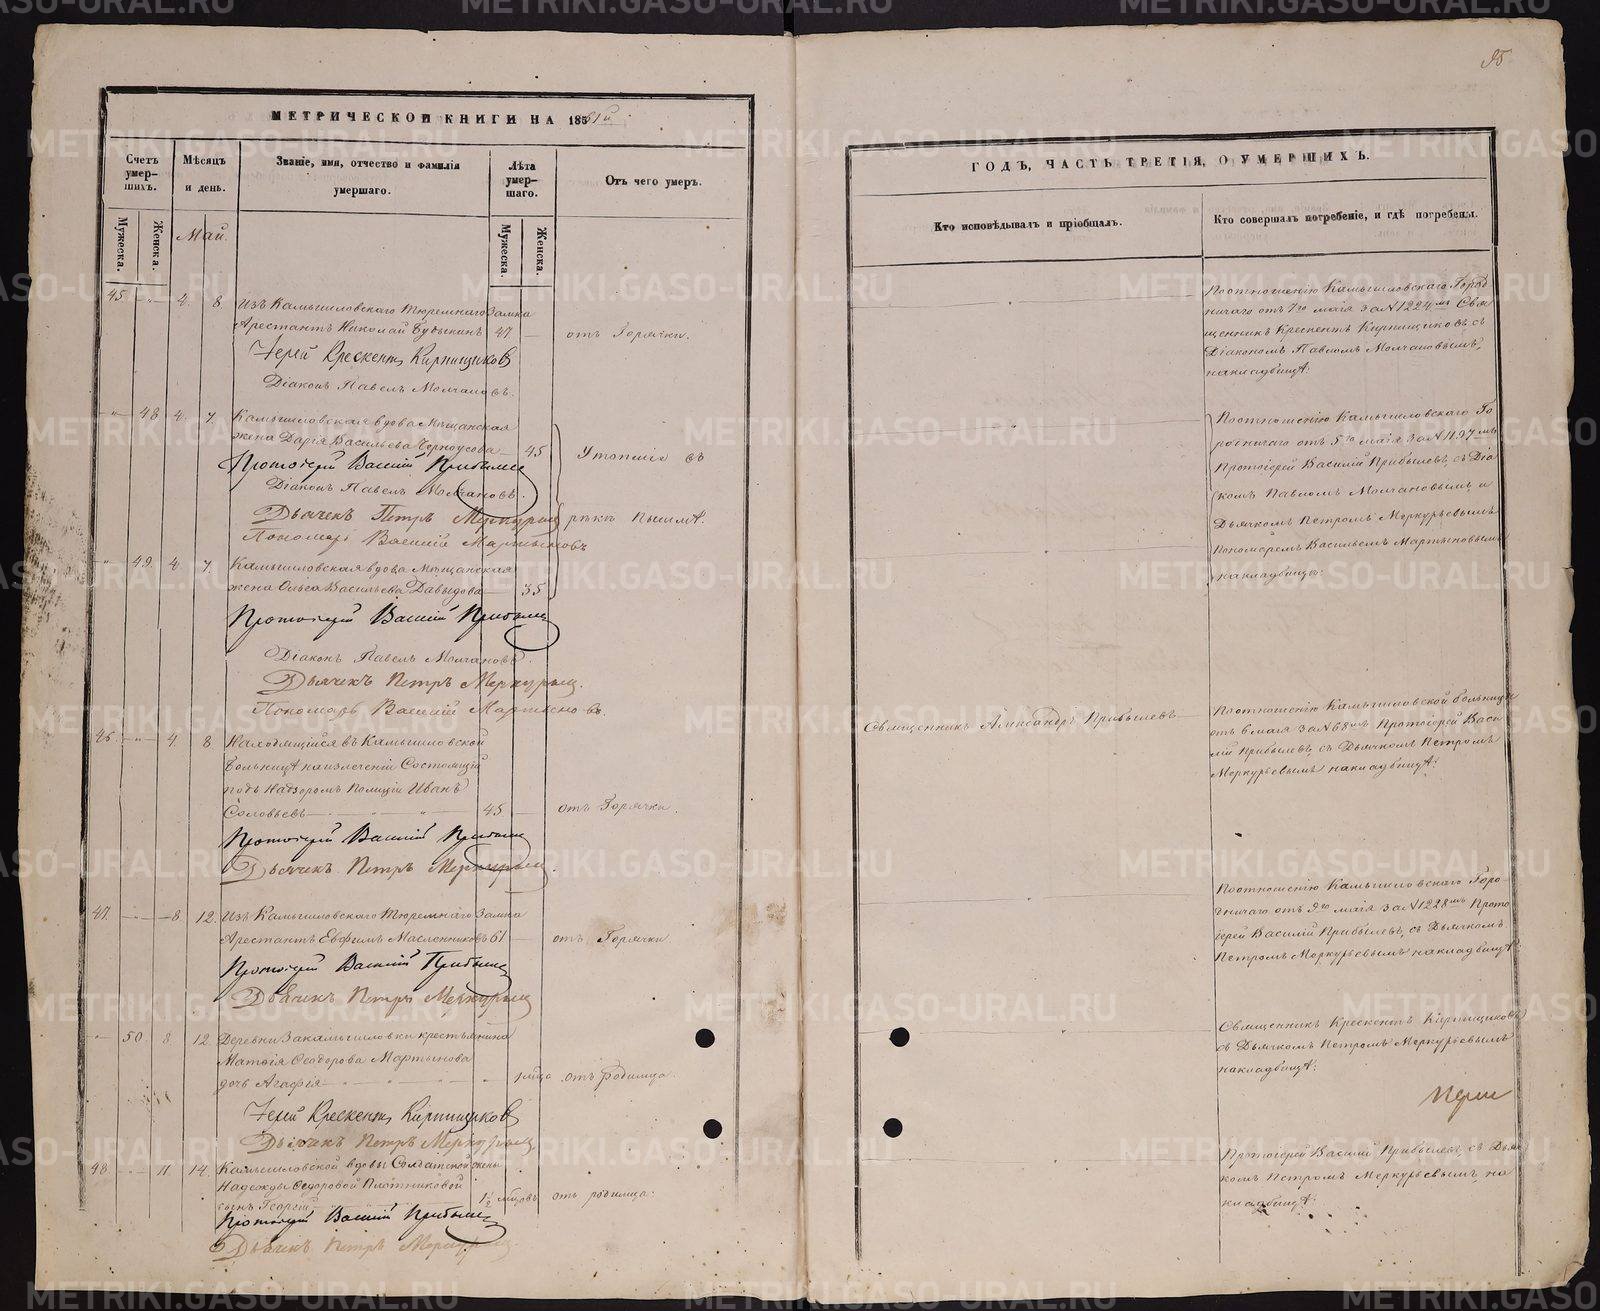 95
МЕТРИЧЕСКОЙ КНИГИ НА 1861й
Счетъ умер-шихъ.
Мѣсяцъ и день.
Званіе, имя, отчество и фамилія умершаго.
Лѣта умер-шаго.
Отъ чего умеръ.
Мужеска.
Женска.
Май.
Мужеска.
Женска.
45 " 4. 8. Изъ Камышловскаго тюремнаго Замка
Арестантъ Николай 47 — отъ Горячки.
Іерей Крескентъ Кирпищиковъ
Діаконъ Павелъ Молчановъ.
" 48 4. 7. Камышловская вдова Мѣщанская
жена Дарія Васильева Черноусова — 45 Утопшія въ
Протоіерей Василій Прибылевъ
Діаконъ Павелъ Молчановъ.
Дьячекъ Петръ Меркурьевъ рѣкѣ Пышмѣ.
Пономарь Василій Мартыновъ
" 49. 4. 7. Камышловская вдова Мѣщанская
жена Ольга Васильева Давыдова — 35
Протоіерей Василій Прибылевъ
Діаконъ Павелъ Молчановъ.
Дьячекъ Петръ Меркурьевъ.
Пономарь Василій Мартыновъ.
46 — " 4. 8 Находящійся въ Камышловской
больницѣ на излеченіи Состоящій
подъ Надзоромъ Полиціи Иванъ
Соловьевъ — " — " 45 — отъ Горячки.
Протоіерей Василій Прибылевъ
Дьячекъ Петръ Меркурьевъ.
47. — " — 8. 12. Изъ Камышловскаго тюремнаго Замка
Арестантъ Евфимъ Масленниковъ 61 — отъ Горячки
Протоіерей Василій Прибылевъ
Дьячекъ Петръ Меркурьевъ
" 50 8 12 Деревни Закамышловки крестьянина
Матѳія Ѳеодорова Мартынова
дочь Агафія — " — " 1 мѣсяца отъ родимца.
Іерей Крескентъ Кирпищиковъ
Дьячекъ Петръ Меркурьевъ
48. — " 11 14. Камышловской вдовы Солдатской жены
Надежды Ѳедоровой Плотниковой
сынъ Георгій — 1½ мѣсяцовъ отъ родимца.
Протоіерей Василій Прибылевъ
Дьячекъ Петръ Меркурьевъ.
ГОДЪ, ЧАСТЬ ТРЕТІЯ, О УМЕРШИХЪ.
Кто исповѣдывалъ и пріобщалъ.
Кто совершалъ погребеніе, и гдѣ погребены.
По отношенію Камышловскаго Город
ничаго отъ 7го маія за № 1224мъ Свя
щенникъ Крескентъ Кирпищиковъ, съ
Діакономъ Павломъ Молчановымъ,
на кладбищѣ.
По отношенію Камышловскаго Го
родничаго отъ 5го маія за № 1197мъ
Протоіерей Василій Прибылевъ, съ Діа
кономъ Павломъ Молчановымъ и
Дьячкомъ Петромъ Меркурьевымъ
Пономаремъ Васильемъ Мартыновымъ
на кладбищѣ.
Священникъ Александръ Прибылевъ
По отношенію Камышловской больницы
отъ 6 маія за № 68мъ Протоіерей Васи
лій Прибылевъ, съ Дьячкомъ Петромъ
Меркурьевымъ на кладбищѣ.
По отношенію Камышловскаго Горо-
дничаго отъ 9го маія за № 1228мъ Прото
іерей Василій Прибылевъ, съ Дьячкомъ
Петромъ Меркурьевымъ на кладбищѣ.
Священникъ Крескентъ Кирпищиковъ
съ Дьячкомъ Петромъ Меркурьевымъ
на кладбищѣ.
Протоіерей Василій Прибылевъ, съ Дьяч
комъ Петромъ Меркурьевымъ, на
кладбищѣ.
METRIKI.GASO-URAL.RU